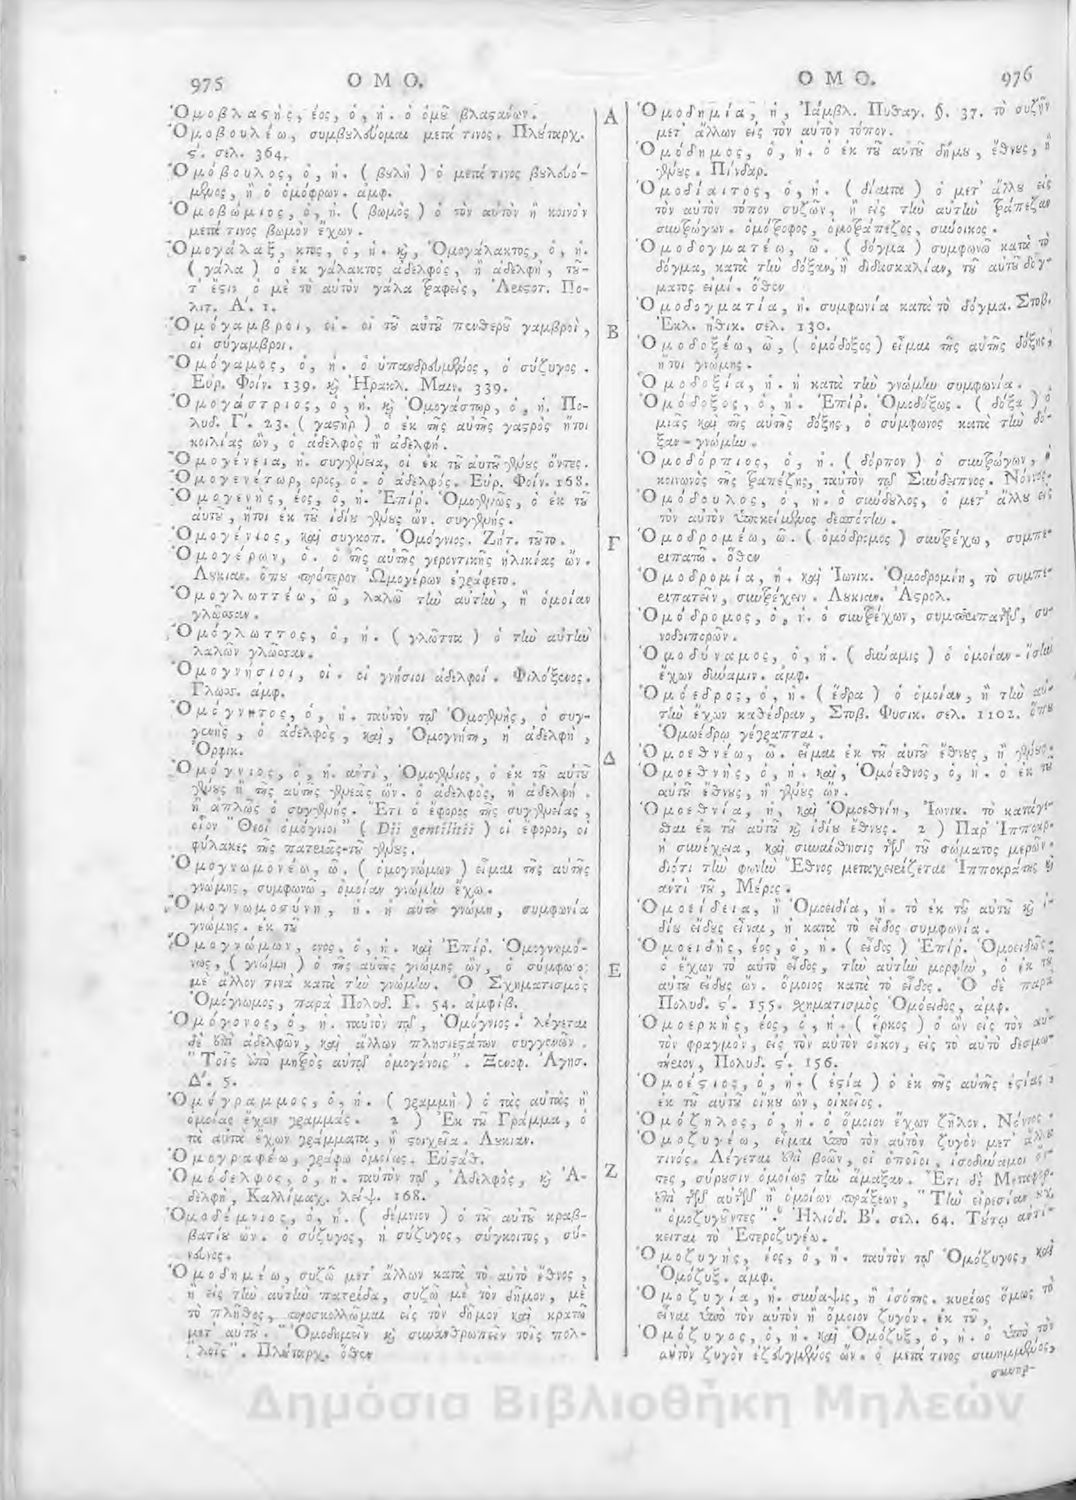 975
Ο Μ Ο.
Ὁμοβλαστὴς, έος, ὁ, ἡ. ὁ ὁμοῦ βλαστάνων.
Ὁμοβουλέω, συμβουλεύομαι μετά τινος. Πλούταρχ.
ς'. σελ. 364.
Ὁμόβουλος, ὁ, ἡ. ( βουλὴ ) ὁ μετά τινος βουλευό-
μενος, ἢ ὁ ὁμόφρων. ἀμφ.
Ὁμοβώμιος, ὁ, ἡ. ( βωμὸς ) ὁ τὸν αὐτὸν ἢ κοινὸν
μετά τινος βωμὸν ἔχων.
Ὁμογάλαξ, κτος, ὁ, ἡ. καὶ, Ὁμογάλακτος, ὁ, ἡ.
( γάλα ) ὁ ἐκ γάλακτος ἀδελφὸς, ἢ ἀδελφὴ, του-
τ' ἔστιν ὁ μὲ τὸ αὐτὸν γάλα τραφεὶς, Ἀριστοτ. Πο-
λιτ. Α'. 1.
Ὁμόγαμβροι, οἱ. οἱ τοῦ αὐτοῦ πενθεροῦ γαμβροὶ,
οἱ σύγαμβροι.
Ὁμόγαμος, ὁ, ἡ. ὁ ὑπανδρευμένος, ὁ σύζυγος.
Εὐρ. Φοίν. 139. καὶ Ἡρακλ. Μαιν. 339.
Ὁμογάστριος, ὁ, ἡ. καὶ Ὁμογάστωρ, ὁ, ἡ. Πο-
λυδ. Γ'. 23. ( γαστὴρ ) ὁ ἐκ τῆς αὐτῆς γαστρὸς ἤτοι
κοιλίας ὢν, ὁ ἀδελφὸς ἢ ἀδελφή.
Ὁμογένεια, ἡ. συγγένεια, οἱ ἐκ τοῦ αὐτοῦ γένους ὄντες.
Ὁμογενέτωρ, ορος, ὁ. ὁ ἀδελφός. Εὐρ. Φοίν. 168.
Ὁμογενὴς, έος, ὁ, ἡ. Ἐπίρ. Ὁμογενῶς, ὁ ἐκ τοῦ
αὐτοῦ, ἤτοι ἐκ τοῦ ἰδίου γένους ὤν. συγγενής.
Ὁμογένιος, καὶ συγκοπ. Ὁμόγνιος. Ζήτ. τοῦτο.
Ὁμογέρων, ὁ. ὁ τῆς αὐτῆς γεροντικῆς ἡλικίας ὤν.
Λουκιαν. ὅπου πρότερον Ὠμογέρων ἐγράφετο.
Ὁμογλωττέω, ῶ, λαλῶ τὴν αὐτὴν, ἢ ὁμοίαν
γλῶσσαν.
Ὁμόγλωττος, ὁ, ἡ. ( γλῶττα ) ὁ τὴν αὐτὴν
λαλῶν γλῶσσαν.
Ὁμογνήσιοι, οἱ. οἱ γνήσιοι ἀδελφοί. Φιλόξενος.
Γλωσσ. ἀμφ.
Ὁμόγνητος, ὁ, ἡ. ταὐτὸν τῷ Ὁμογενὴς, ὁ συγ-
γενὴς, ὁ ἀδελφὸς, καὶ, Ὁμογνήτη, ἡ ἀδελφὴ,
Ὀρφικ.
Ὁμόγνιος, ὁ, ἡ. ἀντὶ, Ὁμογένιος, ὁ ἐκ τοῦ αὐτοῦ
γένους ἢ τῆς αὐτῆς γενεᾶς ὤν. ὁ ἀδελφὸς, ἡ ἀδελφὴ.
ἢ ἁπλῶς ὁ συγγενής. Ἔτι ὁ ἔφορος τῆς συγγενείας,
οἷον "Θεοὶ ὁμόγνιοι" ( Dii gentilitii ) οἱ ἔφοροι, οἱ
φύλακες τῆς πατριᾶς τοῦ γένους.
Ὁμογνωμονέω, ῶ. ( ὁμογνώμων ) εἶμαι τῆς αὐτῆς
γνώμης, συμφωνῶ, ὁμοίαν γνώμην ἔχω.
Ὁμογνωμοσύνη, ἡ. ἡ αὐτὴ γνώμη, συμφωνία
γνώμης. ἐκ τοῦ
Ὁμογνώμων, ονος, ὁ, ἡ. καὶ Ἐπίρ. Ὁμογνωμό-
νως, ( γνώμη ) ὁ τῆς αὐτῆς γνώμης ὢν, ὁ σύμφωνος
μὲ ἄλλον τινὰ κατὰ τὴν γνώμην. Ὁ Σχηματισμὸς
Ὁμόγνωμος, παρὰ Πολυδ. Γ. 54. ἀμφίβ.
Ὁμόγονος, ὁ, ἡ. ταὐτὸν τῷ, Ὁμόγνιος. λέγεται
δὲ ἐπὶ ἀδελφῶν, καὶ ἄλλων πλησιεστάτων συγγενῶν.
"Τοῖς ἀπὸ μητρὸς αὐτῷ ὁμογόνοις". Ξενοφ. Ἀγησ.
Δ'. 5.
Ὁμόγραμμος, ὁ, ἡ. ( γραμμὴ ) ὁ τὰς αὐτὰς ἢ
ὁμοίας ἔχων γραμμάς. 2 ) Ἐκ τοῦ Γράμμα, ὁ
τὰ αὐτὰ ἔχων γράμματα, ἢ στοιχεῖα. Λουκιαν.
Ὁμογραφέω, γράφω ὁμοίως. Εὐστάθ.
Ὁμόδελφος, ὁ, ἡ. ταὐτὸν τῷ, Ἀδελφὸς, καὶ Ἀ-
δελφὴ, Καλλίμαχ. λείψ. 168.
Ὁμοδέμνιος, ὁ, ἡ. ( δέμνιον ) ὁ τοῦ αὐτοῦ κραβ-
βατίου ὤν. ὁ σύζυγος, ἡ σύζυγος, σύγκοιτος, σύ-
νευνος.
Ὁμοδημέω, συζῶ μετ' ἄλλων κατὰ τὸ αὐτὸ ἔθνος,
ἢ εἰς τὴν αὐτὴν πατρίδα, συζῶ μὲ τὸν δῆμον, μὲ
τὸ πλῆθος, προσκολλῶμαι εἰς τὸν δῆμον καὶ κρατῶ
μετ' αὐτοῦ. "Ὁμοδημεῖν καὶ συνανθρωπεῖν τοῖς πολ-
"λοῖς". Πλούταρχ. ὅθεν
Α
Β
Γ
Δ
Ε
Ζ
Ο Μ Ο.
976
Ὁμοδημία, ἡ, Ἰάμβλ. Πυθαγ. §. 37. τὸ συζῆν
μετ' ἄλλων εἰς τὸν αὐτὸν τόπον.
Ὁμόδημος, ὁ, ἡ. ὁ ἐκ τοῦ αὐτοῦ δήμου, ἔθνους, ἢ
γένους. Πίνδαρ.
Ὁμοδίαιτος, ὁ, ἡ. ( δίαιτα ) ὁ μετ' ἄλλου εἰς
τὸν αὐτὸν τόπον συζῶν, ἢ εἰς τὴν αὐτὴν τράπεζαν
συντρώγων. ὁμότροφος, ὁμοτράπεζος, σύνοικος.
Ὁμοδογματέω, ῶ. ( δόγμα ) συμφωνῶ κατὰ τὸ
δόγμα, κατὰ τὴν δόξαν, ἢ διδασκαλίαν, τοῦ αὐτοῦ δόγ-
ματος εἰμί. ὅθεν
Ὁμοδογματία, ἡ. συμφωνία κατὰ τὸ δόγμα. Στοβ.
Ἐκλ. ἠθικ. σελ. 130.
Ὁμοδοξέω, ῶ, ( ὁμόδοξος ) εἶμαι τῆς αὐτῆς δόξης,
ἤτοι γνώμης.
Ὁμοδοξία, ἡ. ἡ κατὰ τὴν γνώμην συμφωνία.
Ὁμόδοξος, ὁ, ἡ. Ἐπίρ. Ὁμοδόξως. ( δόξα ) ὁ
μιᾶς καὶ τῆς αὐτῆς δόξης, ὁ σύμφωνος κατὰ τὴν δό-
ξαν - γνώμην.
Ὁμοδόρπιος, ὁ, ἡ. ( δόρπον ) ὁ συντρώγων, ὁ
κοινωνὸς τῆς τραπέζης, ταὐτὸν τῷ Σύνδειπνος. Νόννος.
Ὁμόδουλος, ὁ, ἡ. ὁ σύνδουλος, ὁ μετ' ἄλλου εἰς
τὸν αὐτὸν ὑποκείμενος δεσπότην.
Ὁμοδρομέω, ῶ. ( ὁμόδρομος ) συντρέχω, συμπε-
ριπατῶ. ὅθεν
Ὁμοδρομία, ἡ. καὶ Ἰωνικ. Ὁμοδρομίη, τὸ συμπε-
ριπατεῖν, συντρέχειν. Λουκιαν. Ἀστρολ.
Ὁμόδρομος, ὁ, ἡ. ὁ συντρέχων, συμπεριπατῶν, συ-
νοδοιπορῶν.
Ὁμοδύναμος, ὁ, ἡ. ( δύναμις ) ὁ ὁμοίαν - ἴσην
ἔχων δύναμιν. ἀμφ.
Ὁμόεδρος, ὁ, ἡ. ( ἕδρα ) ὁ ὁμοίαν, ἢ τὴν αὐ-
τὴν ἔχων καθέδραν, Στοβ. Φυσικ. σελ. 1102. ὅπου
Ὁμωέδρῳ γέγραπται.
Ὁμοεθνέω, ῶ. εἶμαι ἐκ τοῦ αὐτοῦ ἔθνους, ἢ γένους.
Ὁμοεθνὴς, ὁ, ἡ. καὶ, Ὁμόεθνος, ὁ, ἡ. ὁ ἐκ τοῦ
αὐτοῦ ἔθνους, ἢ γένους ὤν.
Ὁμοεθνία, ἡ, καὶ Ὁμοεθνίη, Ἰωνικ. τὸ κατάγε-
σθαι ἐκ τοῦ αὐτοῦ καὶ ἰδίου ἔθνους. 2 ) Παρ' Ἱπποκρ.
ἡ συνέχεια, καὶ συναίσθησις τῶν τοῦ σώματος μερῶν.
διότι τὴν φωνὴν Ἔθνος μεταχειρίζεται Ἱπποκράτης
ἀντὶ τοῦ, Μέρος.
Ὁμοείδεια, ἢ Ὁμοειδία, ἡ. τὸ ἐκ τοῦ αὐτοῦ καὶ ἰ-
δίου εἴδους εἶναι, ἡ κατὰ τὸ εἶδος συμφωνία.
Ὁμοειδὴς, έος, ὁ, ἡ. ( εἶδος ) Ἐπίρ. Ὁμοειδῶς.
ὁ ἔχων τὸ αὐτὸ εἶδος, τὴν αὐτὴν μορφὴν, ὁ ἐκ τοῦ
αὐτοῦ εἴδους ὤν. ὅμοιος κατὰ τὸ εἶδος. Ὁ δὲ παρὰ
Πολυδ. ς'. 155. σχηματισμὸς Ὁμόειδος, ἀμφ.
Ὁμοερκὴς, έος, ὁ, ἡ. ( ἕρκος ) ὁ ὢν εἰς τὸν αὐ-
τὸν φραγμὸν, εἰς τὸν αὐτὸν οἶκον, εἰς τὸ αὐτὸ δεσμω-
τήριον, Πολυδ. ς'. 156.
Ὁμοέστιος, ὁ, ἡ. ( ἑστία ) ὁ ἐκ τῆς αὐτῆς ἑστίας,
ἐκ τοῦ αὐτοῦ οἴκου ὢν, οἰκεῖος.
Ὁμόζηλος, ὁ, ἡ. ὁ ὅμοιον ἔχων ζῆλον. Νόννος.
Ὁμοζυγέω, εἶμαι ὑπὸ τὸν αὐτὸν ζυγὸν μετ' ἄλλου
τινός. Λέγεται ἐπὶ βοῶν, οἱ ὁποῖοι, ἰσοδύναμοι ὄν-
τες, σύρουσιν ὁμοίως τὴν ἅμαξαν. Ἔτι δὲ Μεταφρ.
ἐπὶ τῶν αὐτῶν ἢ ὁμοίων πράξεων, "Τὴν εἰρεσίαν οὐχ
"ὁμοζυγοῦντες". Ἡλιόδ. Β'. σελ. 64. Τούτῳ ἀντί-
κειται τὸ Ἑτεροζυγέω.
Ὁμοζυγὴς, έος, ὁ, ἡ. ταὐτὸν τῷ Ὁμόζυγος, καὶ
Ὁμόζυξ. ἀμφ.
Ὁμοζυγία, ἡ. σύναψις, ἢ ἰσότης. κυρίως ὅμως τὸ
εἶναι ὑπὸ τὸν αὐτὸν ἢ ὅμοιον ζυγόν. ἐκ τοῦ,
Ὁμόζυγος, ὁ, ἡ. καὶ Ὁμόζυξ, ὁ, ἡ. ὁ ὑπὸ τὸν
αὐτὸν ζυγὸν ἐζευγμένος ὤν. ὁ μετά τινος συνημμένος,
συνηρ-
Δημόσια Βιβλιοθήκη Μηλεών